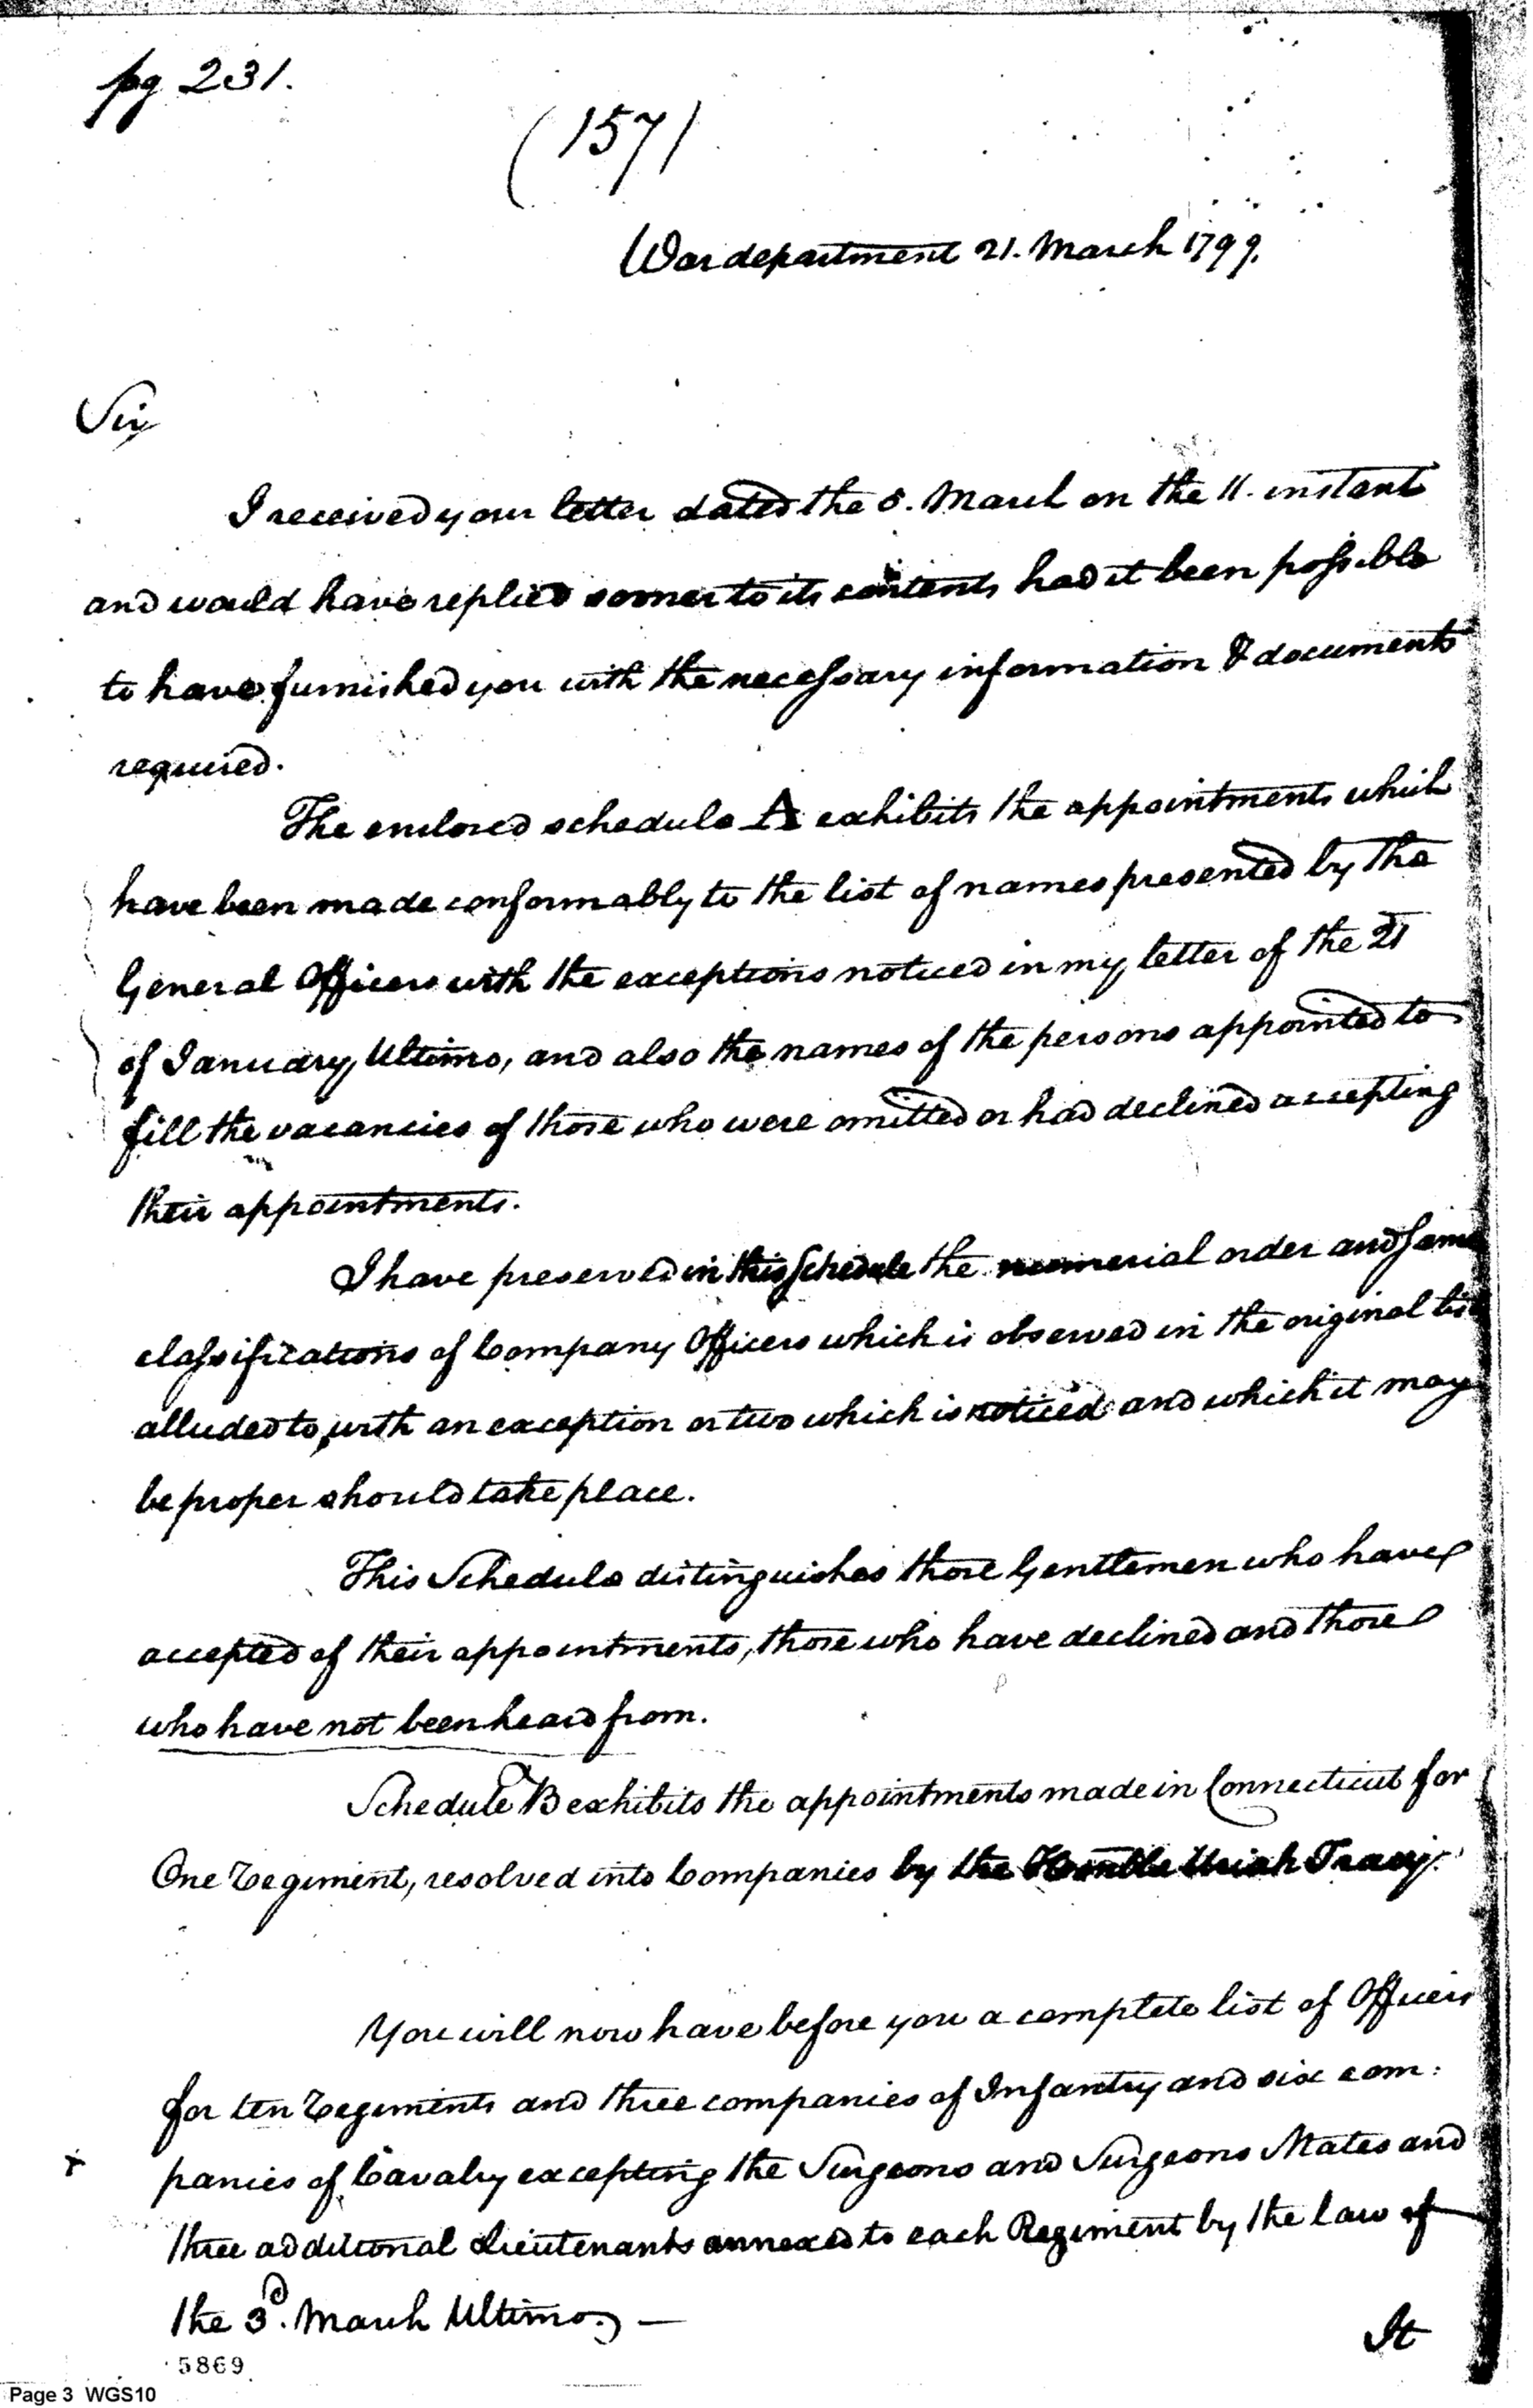 pg 231.
(157)
War department 21. March 1799.
Sir
I received your letter dated the 5. March on the 11. instant
and would have replied sooner to its contents had it been possible
to have furnished you with the necessary information & documents
required.
The enclosed schedule A exhibits the appointments which
have been made conformably to the list of names presented by the
General Officers with the exceptions noticed in my letter of the 21
of January Ultimo, and also the names of the persons appointed to
fill the vacancies of those who were omitted or had declined accepting
their appointments.
I have preserved in this Schedule the numerial order and same
classifications of Company Officers which is observed in the original list
alluded to, with an exception or two which is noticed and which it may
be proper should take place.
This Schedule distinguishes those Gentlemen who have
accepted of their appointments, those who have declined and those
who have not been heard from.
Schedule B exhibits the appointments made in Connecticut for
One Regiment, resolved into Companies by the Honble Uriah Tracy.
You will now have before you a complete list of Officers
for ten Regiments and three companies of Infantry and six com:
panies of Cavalry excepting the Surgeons and Surgeons Mates and
three additional Lieutenants annexed to each Regiment by the law of
the 3d. March Ultimo. —
It
5869
Page 3 WGS10